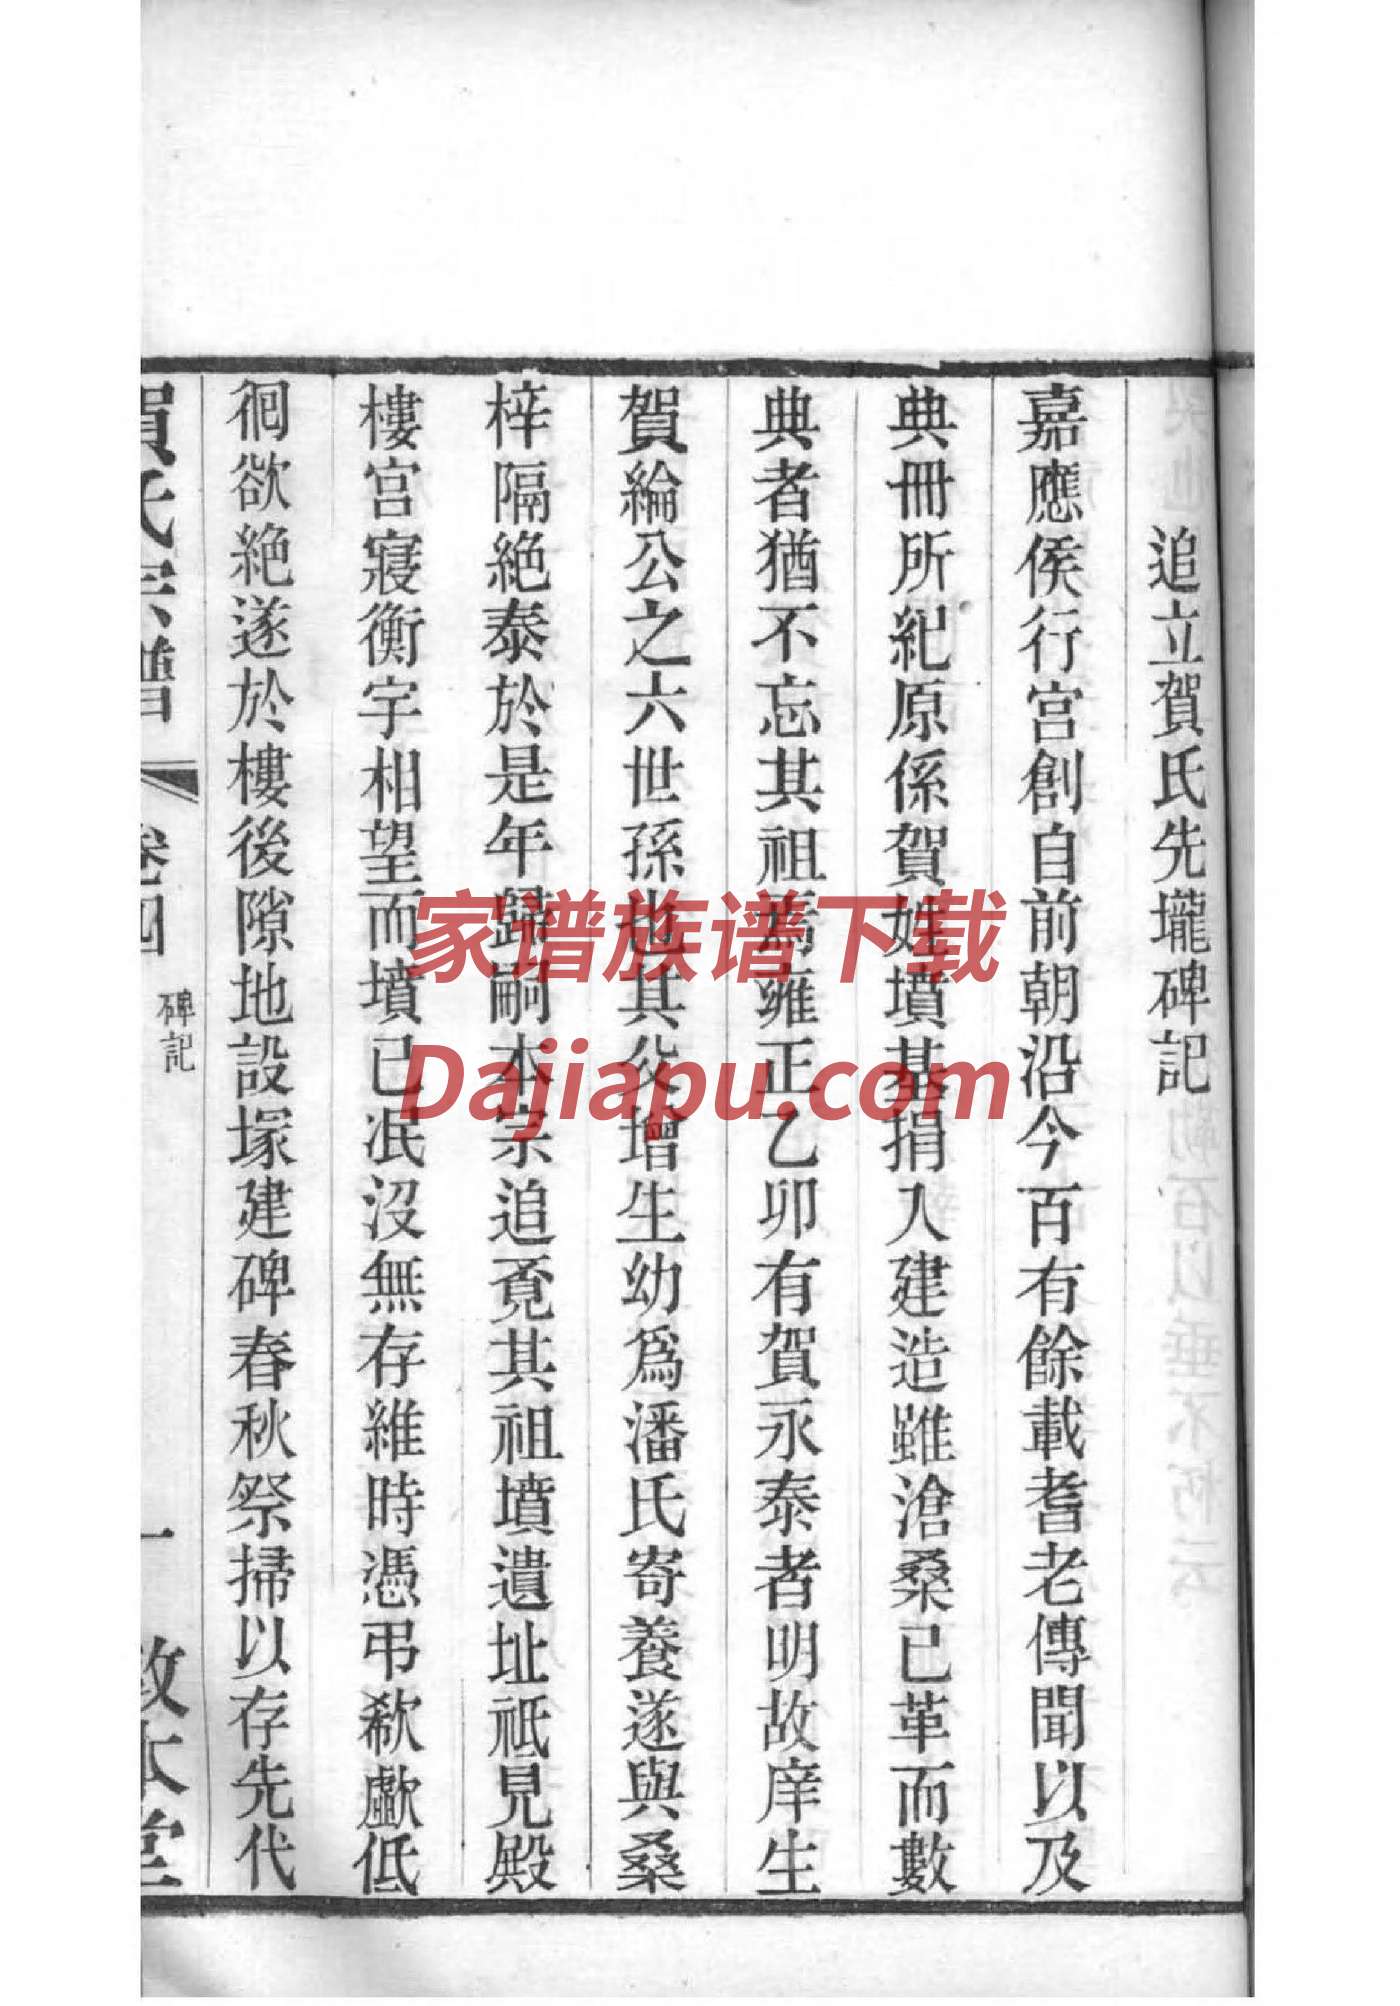 追立賀氏先壠碑記
嘉應侯行宮創自前朝沿今百有餘載耆老傳聞以及
典冊所紀原係賀姓墳基捐入建造雖滄桑已革而數
典者猶不忘其祖焉雍正乙卯有賀永泰者明故庠生
賀綸公之六世孫也其父增生幼爲潘氏寄養遂與桑
梓隔絶泰於是年歸嗣本宗追覓其祖墳遺址祗見殿
樓宮寢衡宇相望而墳已冺沒無存維時憑弔欷歔低
徊欲絶遂於樓後隙地設塚建碑春秋祭掃以存先代
賀氏宗譜
卷四
碑記
一
敦本堂
家谱族谱下载
Dajiapu.com